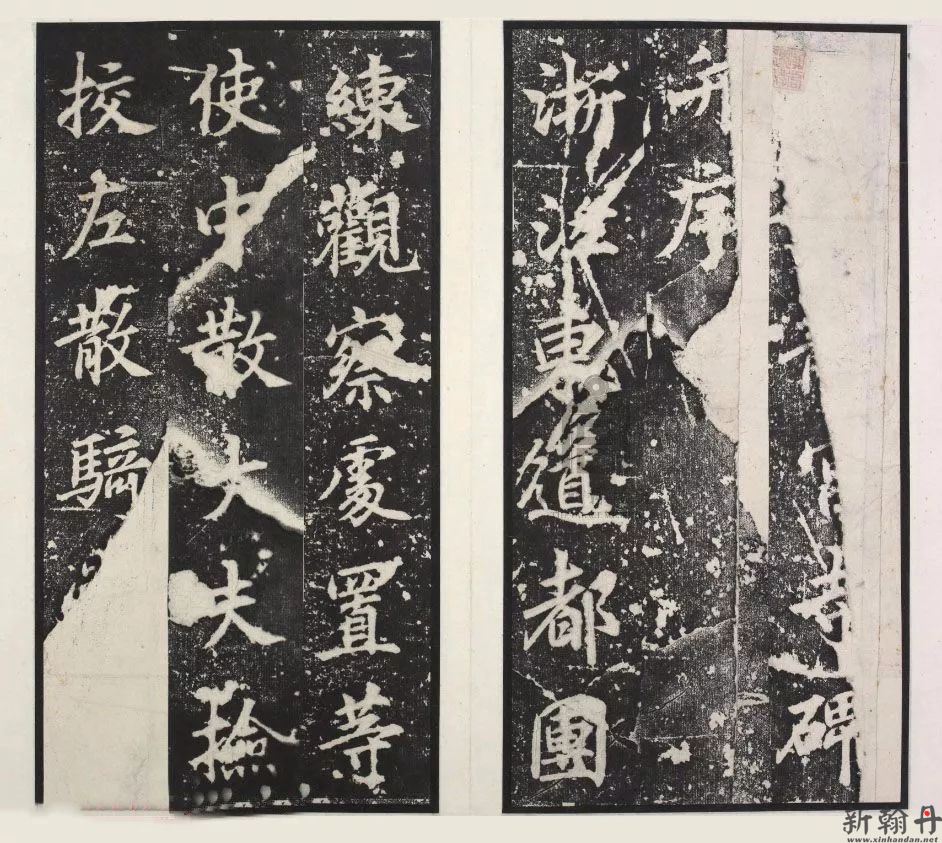 寺碑
并序
浙江東道都團
練觀察處置等
使中散大夫撿
挍左散騎
新翰丹
www.xinhandan.net